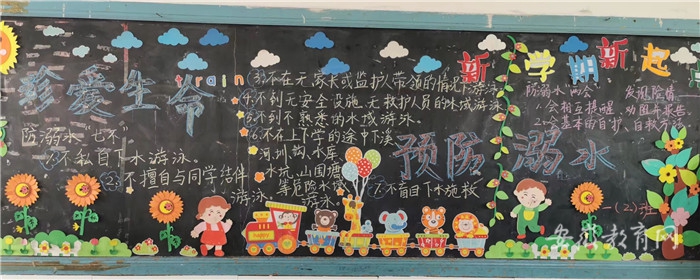 珍爱生命
防溺水“七不”
①不私自下水游泳。
②不擅自与同学结伴
游泳
train
③不在无家长或监护人带领的情况下游泳
④不到无安全设施、无救护人员的水域游泳
⑤不到不熟悉的水域游泳。
⑥不在上下学的途中下溪
河、圳、沟、水库
水坑、山围塘
等危险水域
游泳。
⑦不盲目下水施救
预防溺水
新学期新起
防溺水两会
发现险情
1.会相互提醒、劝阻并报告。
2.会基本的自护、自救方法
一(2)班
安徽教育网